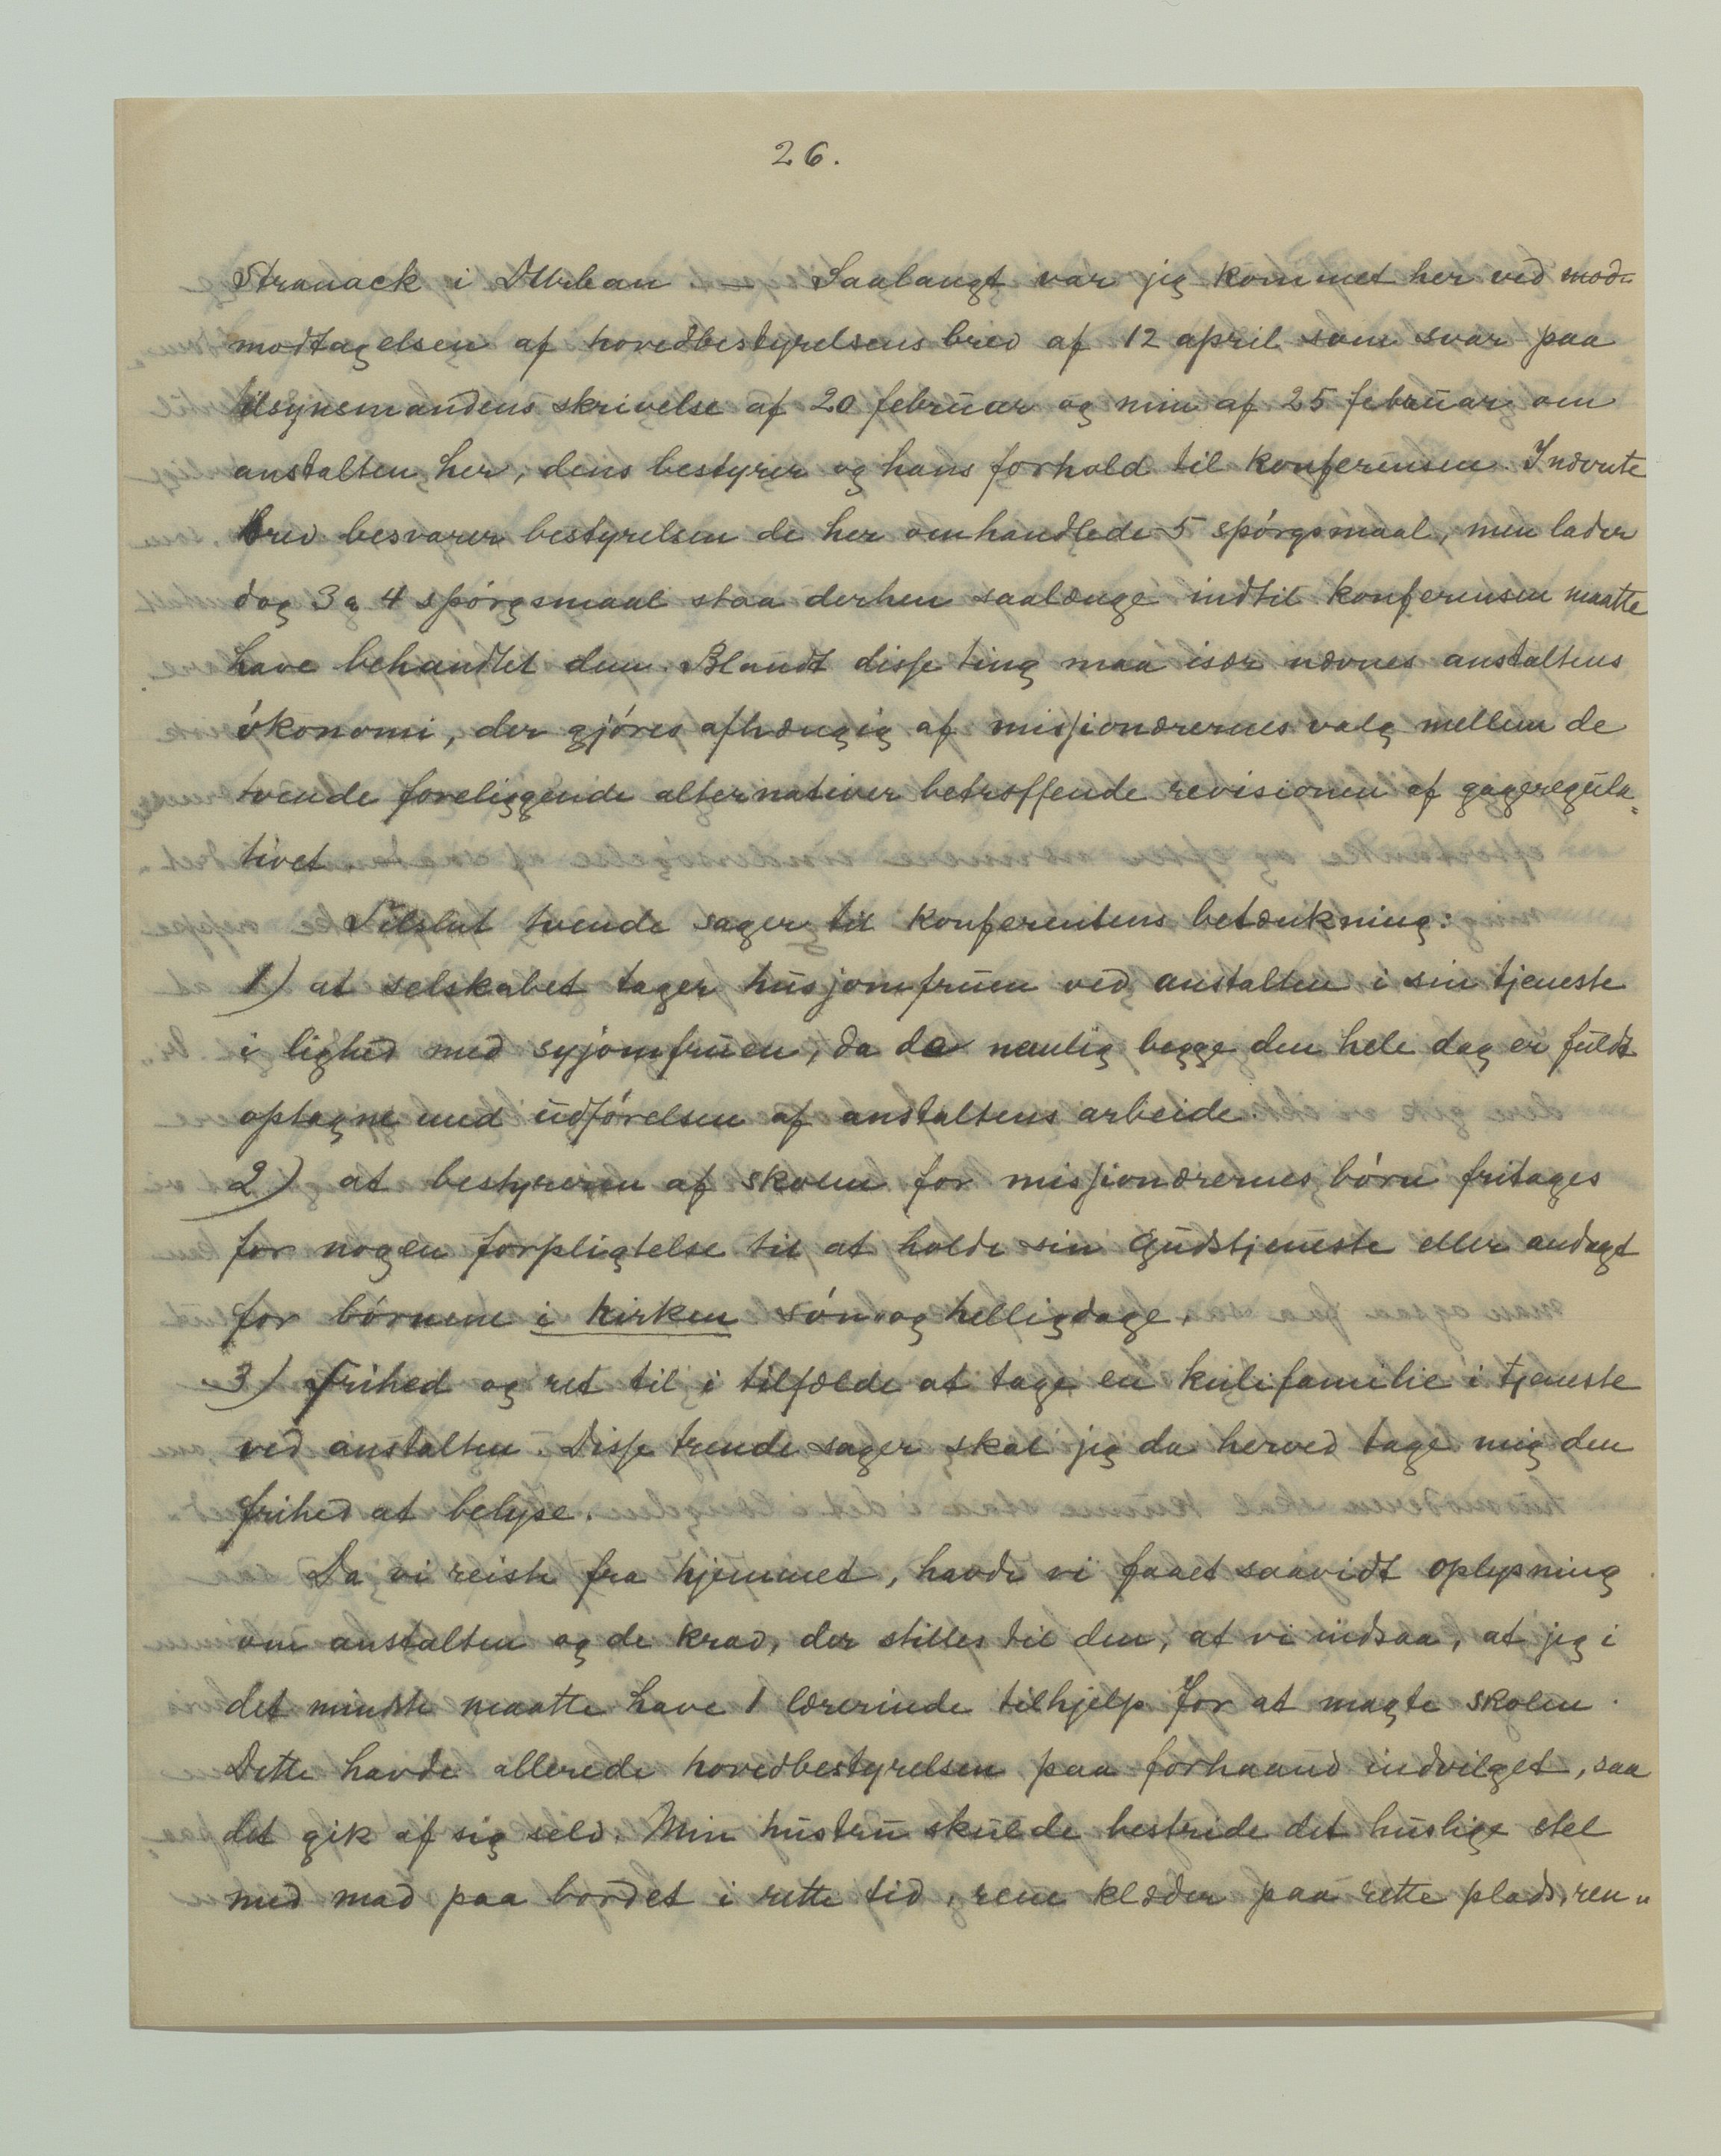 26.
Stranack i DUrban. — Saalangt var jeg kommet her ved mod-
modtagelsen af hovedbestyrelsens brev af 12 april som svar paa
tilsynsmandens skrivelse af 20 februar og min af 25 februar om
anstalten her, dens bestyrer og hans forhold til konferensen. Indvnte
brev besvarer bestyrelsen de her omhandlede 5 spórgsmaal, men lader
dog 3 & 4 spórgsmaal staa derhen saalænge indtil konferensen maatte
have behandlet dem. Blandt disse ting maa især nævnes anstaltens
ókonomi, der gjóres afhængig af missionærernes valg mellem de
tvende foreliggende alternativer betræffende revisionen af gageregula-
tivet.
Tilslut tvende sager til konferentens betænkning:
1) at selskabet tager husjomfruen ved anstalten i sin tjeneste
i lighed med syjomfruen, da de nemlig begge den hele dag er fuldt
optagne med udfórelsen af anstaltens arbeide.
2) at bestyreren af skolen for missionærernes bórn fritages
for nogen forpligtelse til at holde sin Gudstjeneste eller andagt
for bórnene i kirken són. og helligdage.
3) frihed og ret til i tilfælde at tage en kulifamilie i tjeneste
ved anstalten. Disse trende sager skal jeg da herved tage mig den
frihed at belyse.
Da vi reiste fra hjemmet, havde vi faaet saavidt oplysning
om anstalten og de krav, der stilles til den, at vi indsaa, at jeg i
det mindste maatte have 1 lærerinde tilhjelp for at magte skolen.
Dette havde allerede hovedbestyrelsen paa forhaand indvilget, saa
det gik af sig selv. Min hustru skulde bestride det huslige stel
med mad paa bordet i rette tid, rene klæder paa rette plads, ren-